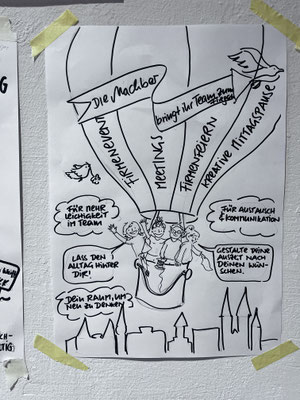 Die Machbar
bringt ihr Team zum
Fliegen
FIRMENEVENT
MEETINGS
FIRMENFEIERN
KREATIVE MITTAGSPAUSE
FÜR MEHR
LEICHIGKEIT
IM TEAM
FÜR AUSTAUSCH
& KOMMUNIKATION
LASS DEN
ALLTAG HINTER
DIR!
GESTALTE DEINE
AUSZEIT NACH
DEINEN WÜN-
SCHEN.
Dein RAUM, UM
NEU ZU DENKEN